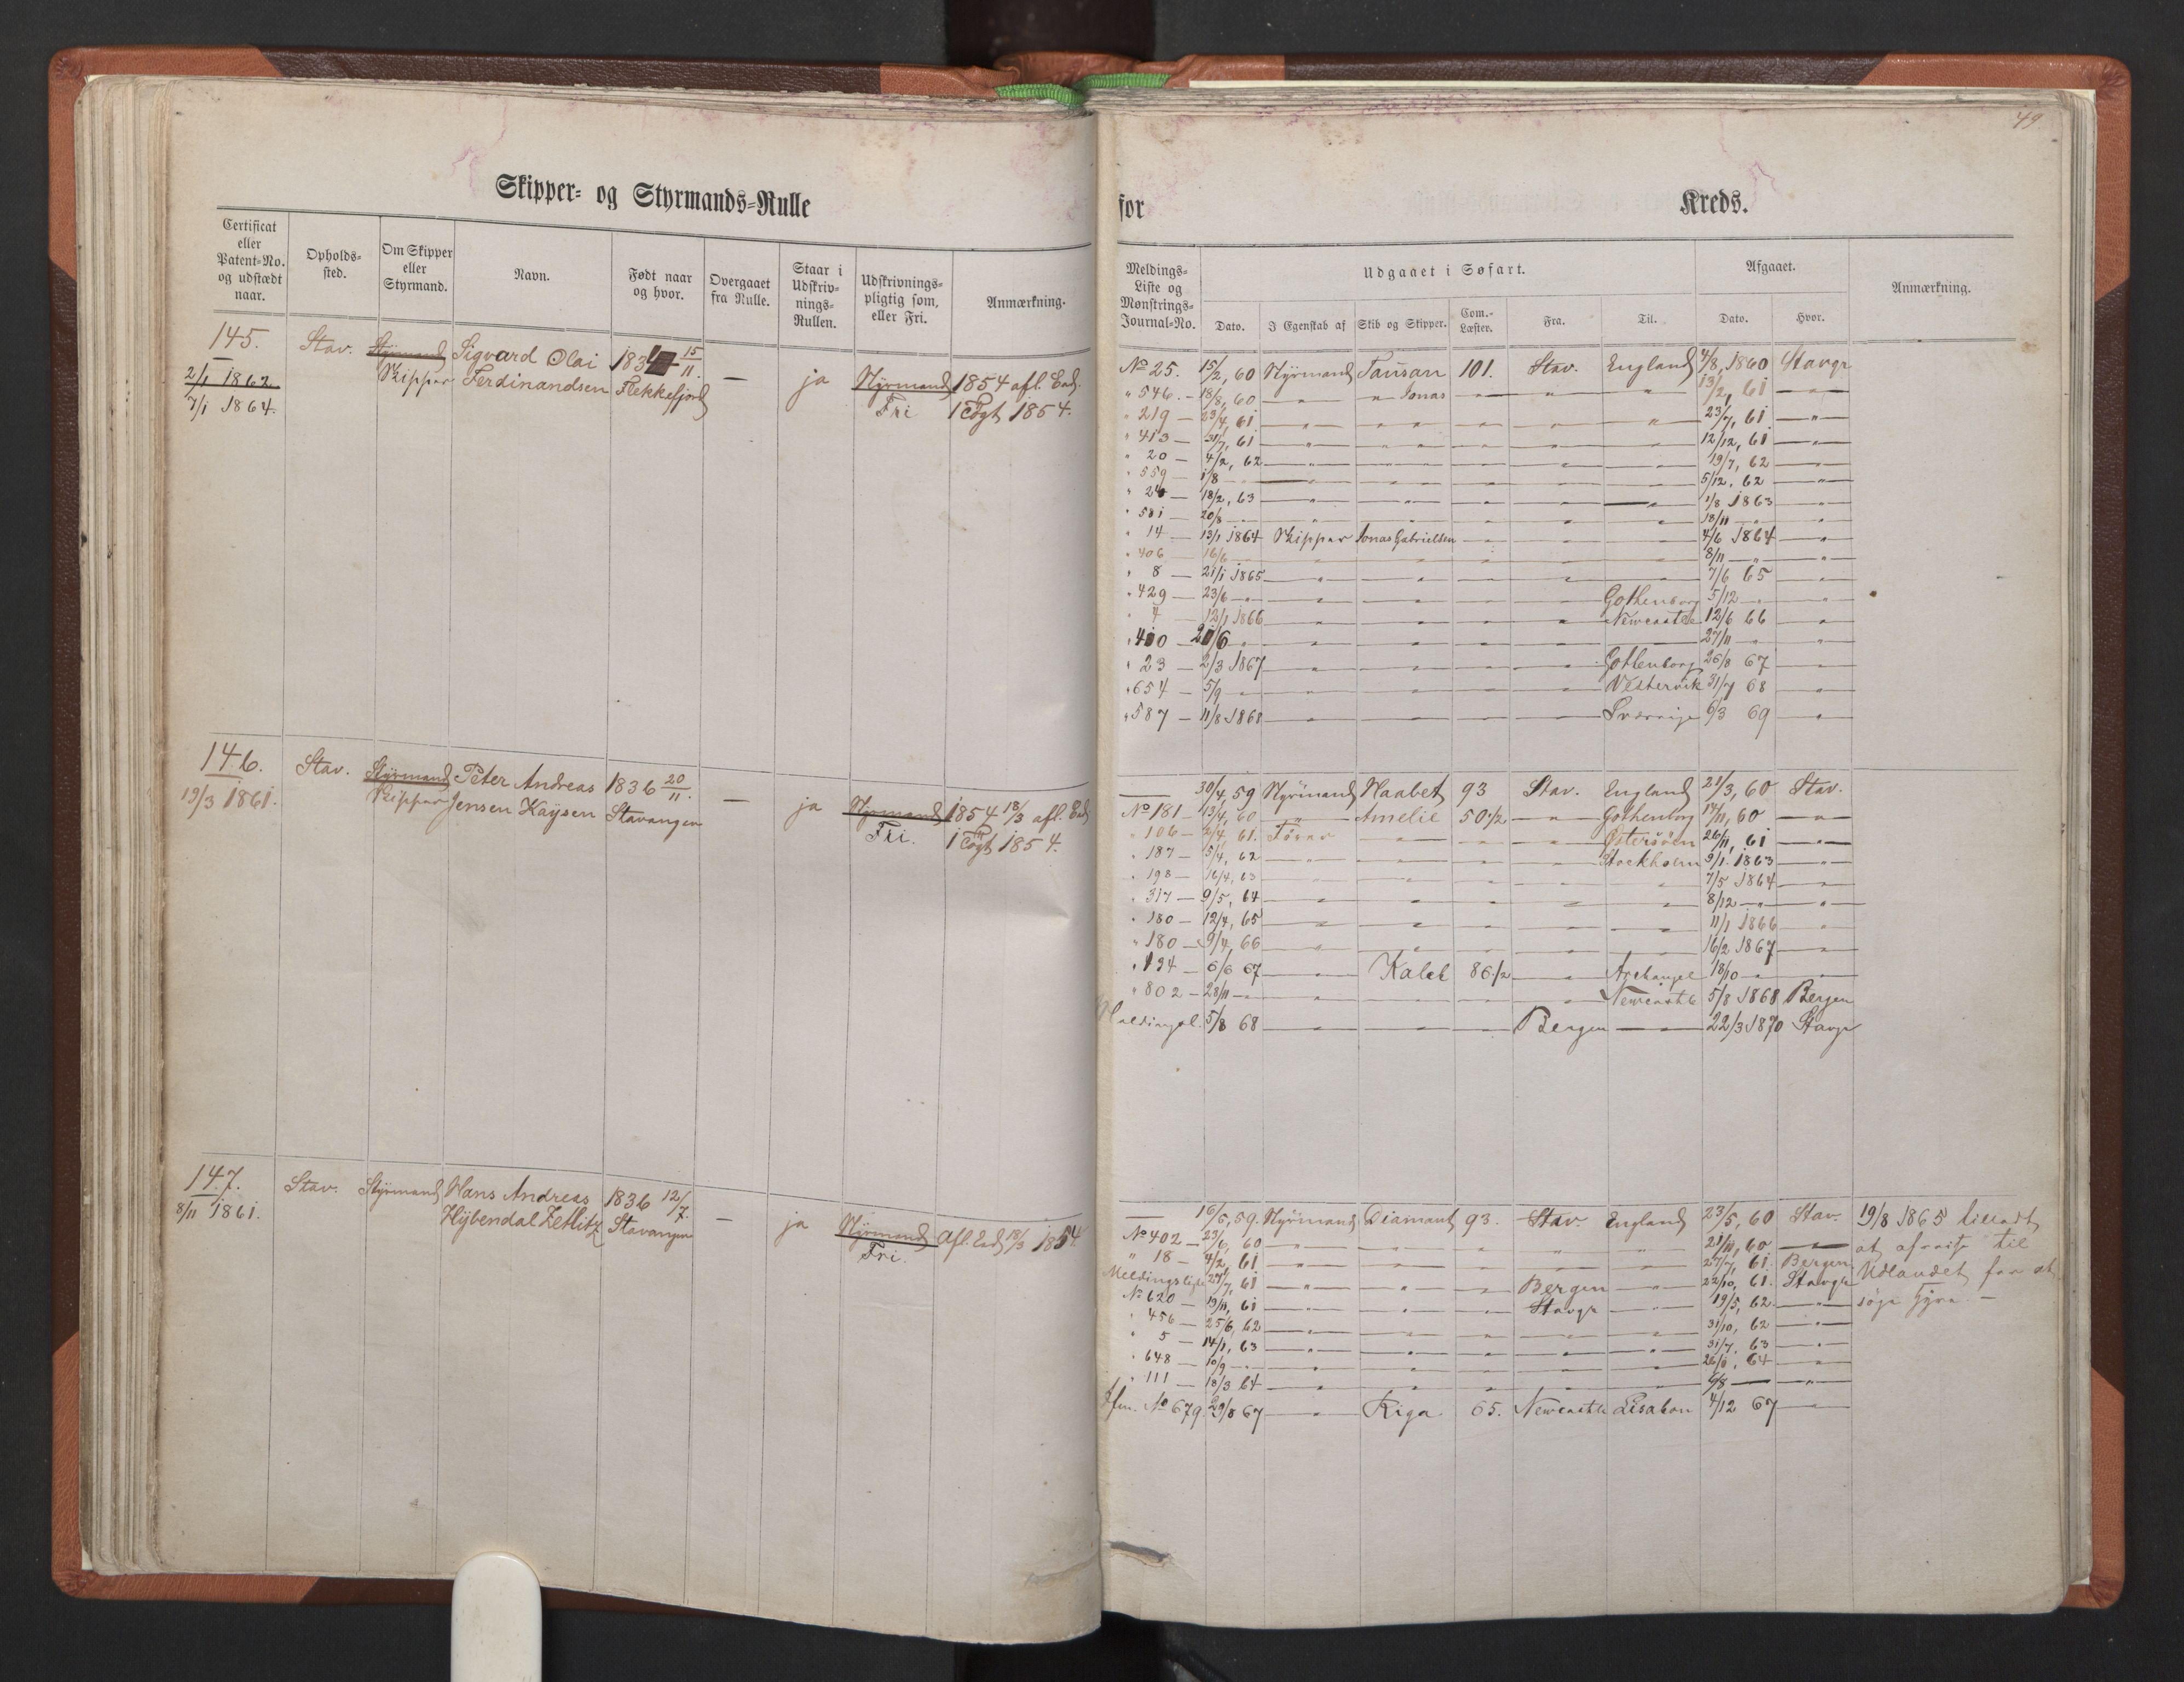 49.
Skipper- og Styrmands-Rulle
for Kreds.
Certificat eller Patent-No. og udstædt naar.
Opholds-sted.
Om Skipper eller Styrmand.
Navn.
Født naar og hvor.
Overgaaet fra Rulle.
Staar i Udskriv-nings-Rullen.
Udskrivnings-pligtig som, eller Fri.
Anmærkning.
145. Stav. Styrmand Sigvard Olai 1834 15/11. — ja Styrmand 1854 afl. Ed.
2/1 1862 Skipper Ferdinandsen Flekkefjord Fri 1 Togt 1854.
7/1 1864.
146. Stav. Styrmand Peter Andreas 1836 20/11. — ja Styrmand 1854 18/3 afl. Ed
19/3 1861. Skipper Jensen Kaÿsen Stavanger Fri. 1 Togt 1854.
147. Stav. Styrmand Hans Andreas 1836 12/7. — ja Styrmand Afl. Ed 18/3 1854.
8/11 1861. Hÿbendal Zetlitz Stavanger Fri.
Meldings-Liste og Mønstrings-Journal-No.
Udgaaet i Søfart.
Afgaaet.
Anmærkning.
Dato. I Egenskab af Skib og Skipper. Com.-Læster. Fra. Til. Dato. Hvor.
No 25. 15/2, 60 Styrmand Tausan 101. Stav. England 4/8, 1860 Stavgr
" 546. — 18/8, 60 — " — " Jonas — " — " — " 13/2, 61 — " —
" 219 — 23/4, 61 — " — " — " — " — " 23/7, 61 — " —
" 413 — 31/7, 61 — " — " — " — " — " 12/12, 61 — " —
" 20 — 4/2, 62 — " — " — " — " — " 19/7, 62 — " —
" 559 — 1/8 — " — " — " — " — " 5/12, 62 — " —
" 24 — 18/2, 63 — " — " — " — " — " 1/8 1863 — " —
" 581 — 20/8 — " — " — " — " — " 18/11 — " —
" 14 — 13/1 1864 Skipper Jonas Gabrielsen — " — " — " 4/6 1864 — " —
" 406 — 16/6 — " — " — " — " — " 8/11 — " —
" 8 — 21/1 1865 — " — " — " — " — " 7/6 65 — " —
" 429 — 23/6 — " — " — " — " — Gothenborg 5/12 — " —
" 4 — 12/1 1866 — " — " — " — " — Newcastle 12/6 66 — " —
" 400 — 20/6 — " — " — " — " — " 27/11 — " —
" 23 — 2/3 1867 — " — " — " — " — Gothenborg 26/8 67 — " —
" 654 — 5/9 — " — " — " — " — Vestervik 31/7 68 — " —
" 587 — 11/8 1868 — " — " — " — " — Sverrige 6/3 69 — " —
— 30/4, 59 Styrmand Haabet 93 Stav. England 21/3, 60 Stav.
No 181 — 13/4, 60 — " — Amelie 50 1/2 — " — Gothenborg 14/11, 60 — " —
" 106 — 2/4, 61. Fører — " — " — " — Østersöen 26/11, 61 — " —
" 187 — 5/4, 62 — " — " — " — " — Stockholm 9/1. 1863 — " —
" 198 — 16/4, 63 — " — " — " — " — " 7/5 1864 — " —
" 317 — 9/5, 64 — " — " — " — " — " 8/12 — " —
" 180 — 12/4, 65 — " — " — " — " — " 11/1 1866 — " —
" 180 — 9/4, 66 — " — " — " — " — " 16/2 1867 — " —
" 194 — 6/6 67 — " — Kaleb 86 1/2 — " — Archangel 18/10 — " —
" 802 — 28/11 — " — " — " — " — Newcastle 5/8 1868 Bergen
Meldingsl. 5/8 68 — " — " — " — Bergen — 22/3 1870 Stavgr
— 16/5, 59. Styrmand Diamant 93. Stav. England 23/5, 60 Stav. 19/8 1865 tilladt
No 402 — 23/6, 60 — " — " — " — " — " 21/11, 60 — " — at afreise til
" 18 — 4/2, 61 — " — " — " — " — " 27/7, 61. Bergen Udlandet for at
Meldingsliste 27/7, 61 — " — " — " — Bergen — " 22/10, 61. Stavgr søge Hyre. —
No 620 — 19/11, 61 — " — " — " — Stavgr — " 19/5, 62 — " —
" 456 — 25/6, 62 — " — " — " — " — " 31/10, 62 — " —
" 5 — 14/1, 63 — " — " — " — " — " 31/7, 63 — " —
" 648 — 10/9 — " — " — " — " — " 26/1, 64 — " —
" 111 — 18/3 64 — " — " — " — " — " 6/8 — " —
No 679. 29/8 67 — " — Riga 65. Newcastle Lisabon 4/12 67 — " —